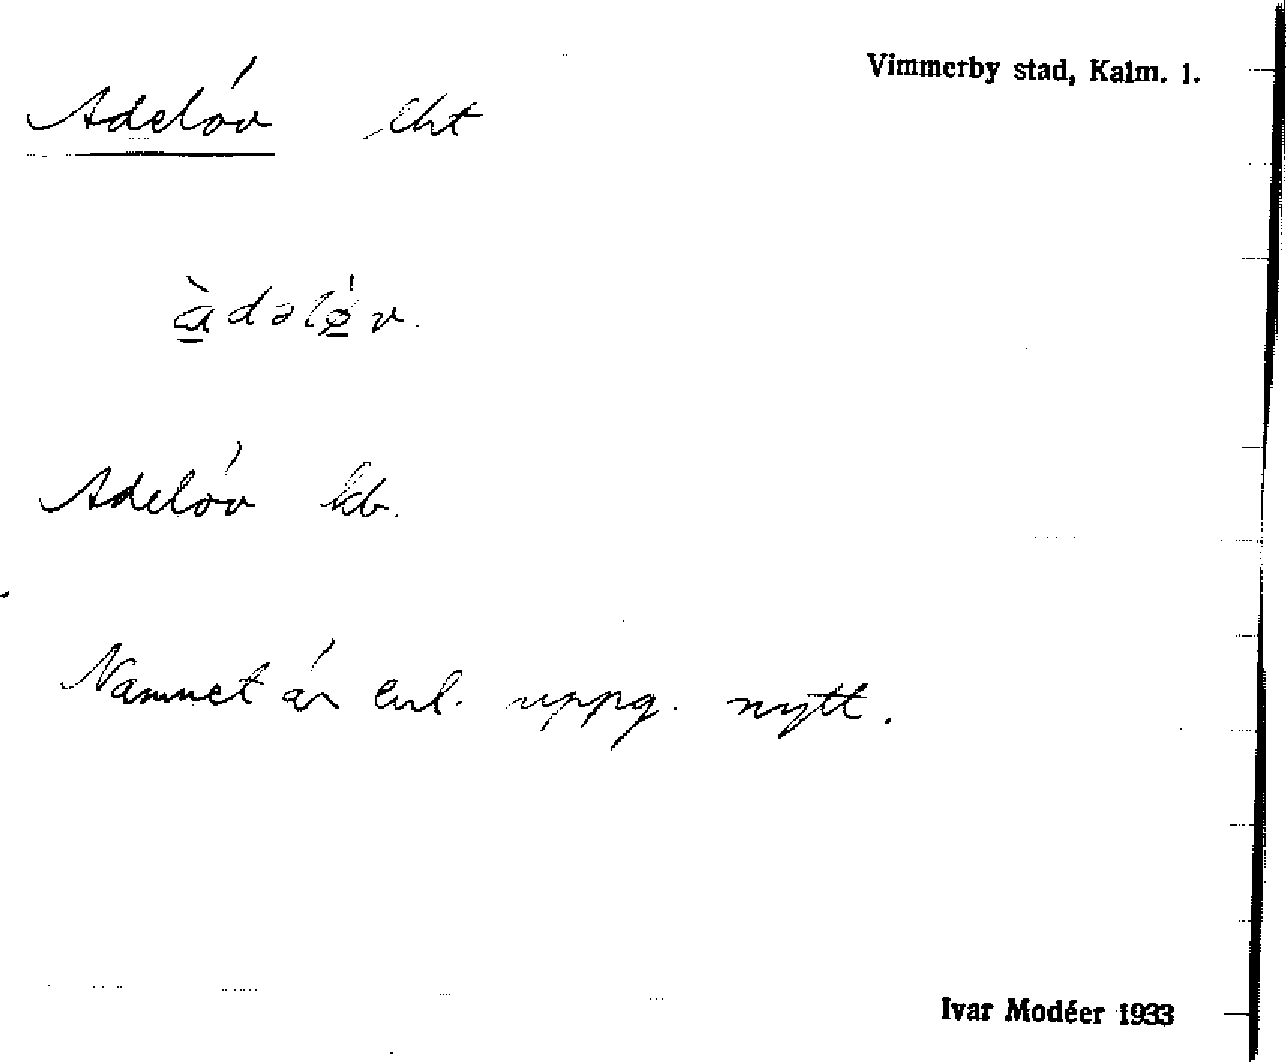 Vimmerby stad, Kalm. l.
Adelöv lht
àdəlø̀v.
Adelöv kb.
Namnet är enl. uppg. nytt.
Ivar Modéer 1933